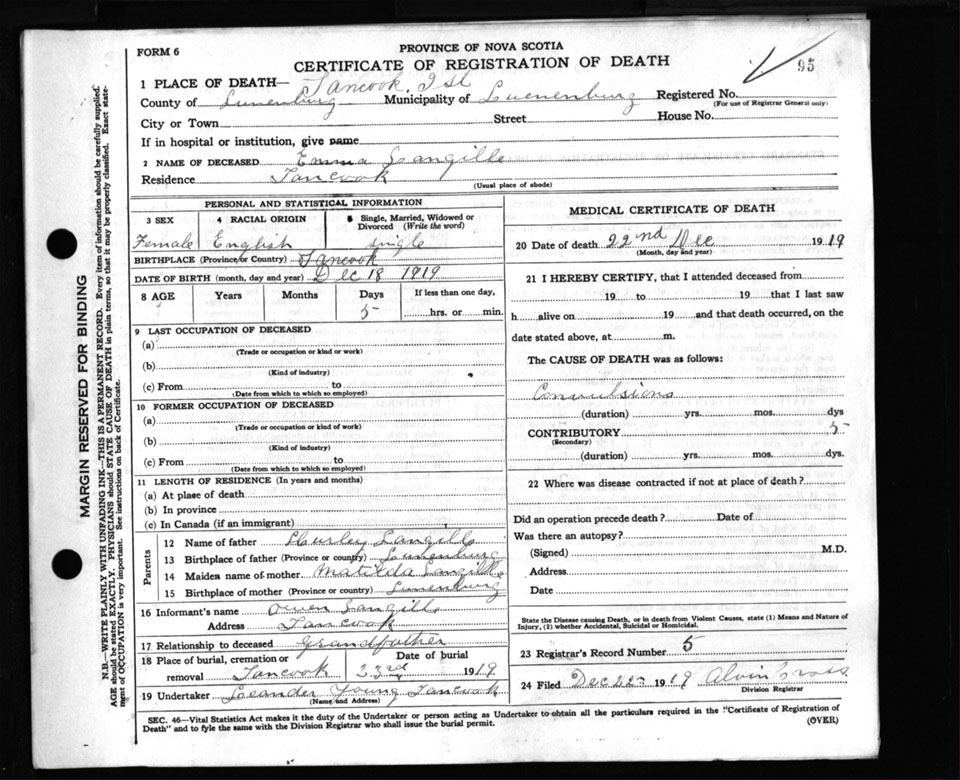 FORM 6
PROVINCE OF NOVA SCOTIA
CERTIFICATE OF REGISTRATION OF DEATH
95
1 PLACE OF DEATH— Tancook, Isl
County of Lunenburg Municipality of Luenenburg Registered No.
(For use of Registrar General only)
City or Town Street House No.
If in hospital or institution, give name
2 NAME OF DECEASED Emma Langille
Residence Tancook
(Usual place of abode)
PERSONAL AND STATISTICAL INFORMATION
3 SEX 4 RACIAL ORIGIN 5 Single, Married, Widowed or Divorced (Write the word)
Female English single
BIRTHPLACE (Province or Country) Tancook
DATE OF BIRTH (month, day and year) Dec 18 1919
8 AGE Years Months Days If less than one day,
5 hrs. or min.
9 LAST OCCUPATION OF DECEASED
(a)
(Trade or occupation or kind or work)
(b)
(Kind of industry)
(c) From to
(Date from which to which so employed)
10 FORMER OCCUPATION OF DECEASED
(a)
(Trade or occupation or kind of work)
(b)
(Kind of industry)
(c) From to
(Date from which to which so employed)
11 LENGTH OF RESIDENCE (In years and months)
(a) At place of death
(b) In province
(c) In Canada (if an immigrant)
Parents
12 Name of father Langille
13 Birthplace of father (Province or country) Lunenburg
14 Maiden name of mother Matilda Langille
15 Birthplace of mother (Province or country) Lunenburg
16 Informant's name Owen Langille
Address Tancook
17 Relationship to deceased Grandfather
18 Place of burial, cremation or removal Tancook Date of burial 23rd 1919
19 Undertaker Leander Young Tancook
(Name and Address)
MEDICAL CERTIFICATE OF DEATH
20 Date of death 22nd Dec 1919
(Month, day and year)
21 I HEREBY CERTIFY, that I attended deceased from
19 to 19 that I last saw
h alive on 19 and that death occurred, on the
date stated above, at m.
The CAUSE OF DEATH was as follows:
Convulsions
(duration) yrs. mos. dys
CONTRIBUTORY 5
(Secondary)
(duration) yrs. mos. dys.
22 Where was disease contracted if not at place of death?
Did an operation precede death? Date of
Was there an autopsy?
(Signed) M.D.
Address
Date
State the Disease causing Death, or in death from Violent Causes, state (1) Means and Nature of
Injury, (2) whether Accidental, Suicidal or Homicidal.
23 Registrar's Record Number 5
24 Filed Dec 22 1919 Alvin Cross
Division Registrar
SEC. 46—Vital Statistics Act makes it the duty of the Undertaker or person acting as Undertaker to obtain all the particulars required in the "Certificate of Registration of
Death" and to fyle the same with the Division Registrar who shall issue the burial permit.
(OVER)
MARGIN RESERVED FOR BINDING
N.B.—WRITE PLAINLY WITH UNFADING INK—THIS IS A PERMANENT RECORD. Every item of information should be carefully supplied.
AGE should be stated EXACTLY. PHYSICIANS should STATE CAUSE OF DEATH in plain terms, so that it may be properly classified. Exact state-
ment of OCCUPATION is very important. See instructions on back of Certificate.